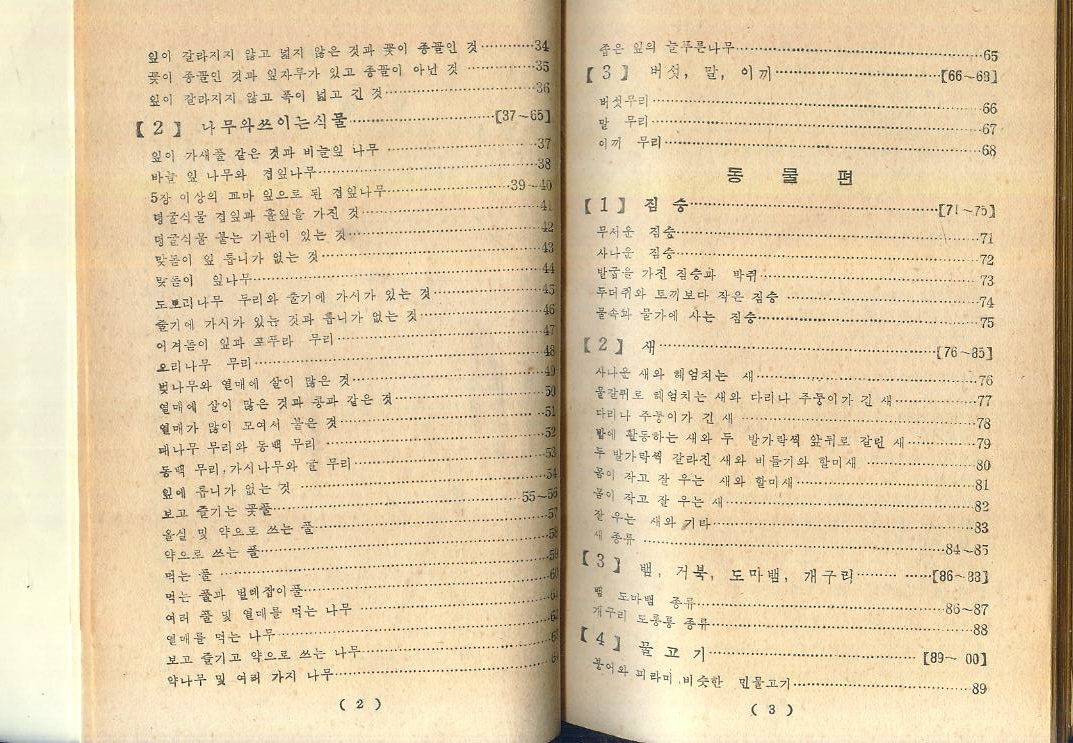 잎이 갈라지지 않고 넓지 않은 것과 꽃이 종꼴인 것 34
꽃이 종꼴인 것과 잎자루가 있고 종꼴이 아닌 것 35
잎이 갈라지지 않고 폭이 넓고 긴 것 36
【2】 나무와쓰이는식물 [37~65]
잎이 가새풀 같은 것과 비늘잎 나무 37
바늘 잎 나무와 겹잎나무 38
5장 이상의 꼬마 잎으로 된 겹잎나무 39~40
덩굴식물 겹잎과 홑잎을 가진 것 41
덩굴식물 붙는 기관이 있는 것 42
맞돋이 잎 톱니가 없는 것 43
맞돋이 잎나무 44
도토리나무 무리와 줄기에 가시가 있는 것 45
줄기에 가시가 있는 것과 톱니가 없는 것 46
어겨돋이 잎과 포푸라 무리 47
오리나무 무리 48
벚나무와 열매에 살이 많은 것 49
열매에 살이 많은 것과 콩과 같은 것 50
열매가 많이 모여서 붙은 것 51
대나무 무리와 동백 무리 52
동백 무리, 가시나무와 귤 무리 53
잎에 톱니가 없는 것 54
보고 즐기는 꽃풀 55~56
올실 및 약으로 쓰는 풀 57
약으로 쓰는 풀 58
먹는 풀 59
먹는 풀과 벌레잡이풀 60
여러 풀 및 열매를 먹는 나무
열매를 먹는 나무
보고 즐기고 약으로 쓰는 나무
약나무 및 여러 가지 나무
( 2 )
좁은 잎의 늘푸른나무 65
【3】 버섯, 말, 이끼 [66~68]
버섯무리 66
말 무리 67
이끼 무리 68
동 물 편
【1】 짐 승 [71~75]
무서운 짐승 71
사나운 짐승 72
발굽을 가진 짐승과 박쥐 73
두더쥐와 토끼보다 작은 짐승 74
물속과 물가에 사는 짐승 75
【2】 새 [76~85]
사나운 새와 헤엄치는 새 76
물갈퀴로 헤엄치는 새와 다리나 주둥이가 긴 새 77
다리나 주둥이가 긴 새 78
밤에 활동하는 새와 두 발가락씩 앞뒤로 갈린 새 79
두 발가락씩 갈라진 새와 비둘기와 할미새 80
몸이 작고 잘 우는 새와 할미새 81
몸이 작고 잘 우는 새 82
잘 우는 새와 기타 83
새 종류 84~85
【3】 뱀, 거북, 도마뱀, 개구리 [86~88]
뱀 도마뱀 종류 86~87
개구리 도롱룡 종류 88
【4】 물 고 기 [89~ 00]
붕어와 피라미 비슷한 민물고기 89
( 3 )